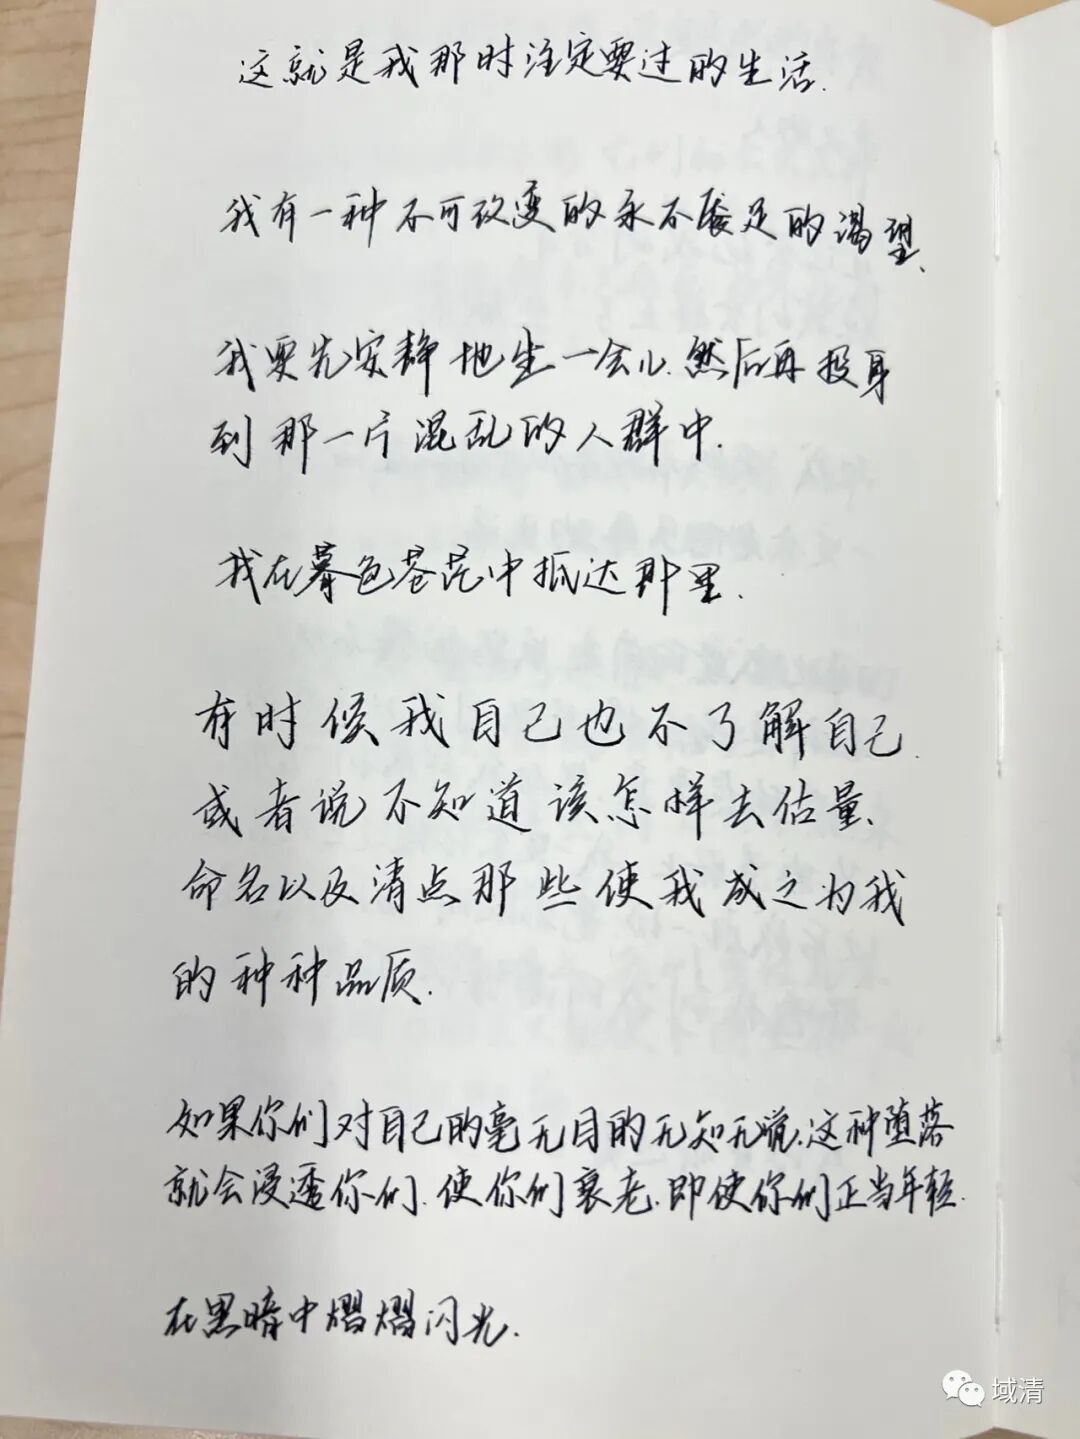 这就是我那时注定要过的生活.
我有一种不可改变的永不餍足的渴望、
我要先安静地坐一会儿.然后再投身
到那一片混乱的人群中.
我在暮色苍茫中抵达那里.
有时候我自己也不了解自己.
或者说不知道该怎样去估量、
命名以及清点那些使我成之为我
的种种品质.
如果你们对自己的毫无目的无知无觉.这种堕落
就会浸透你们.使你们衰老.即使你们正当年轻.
在黑暗中熠熠闪光.
域清